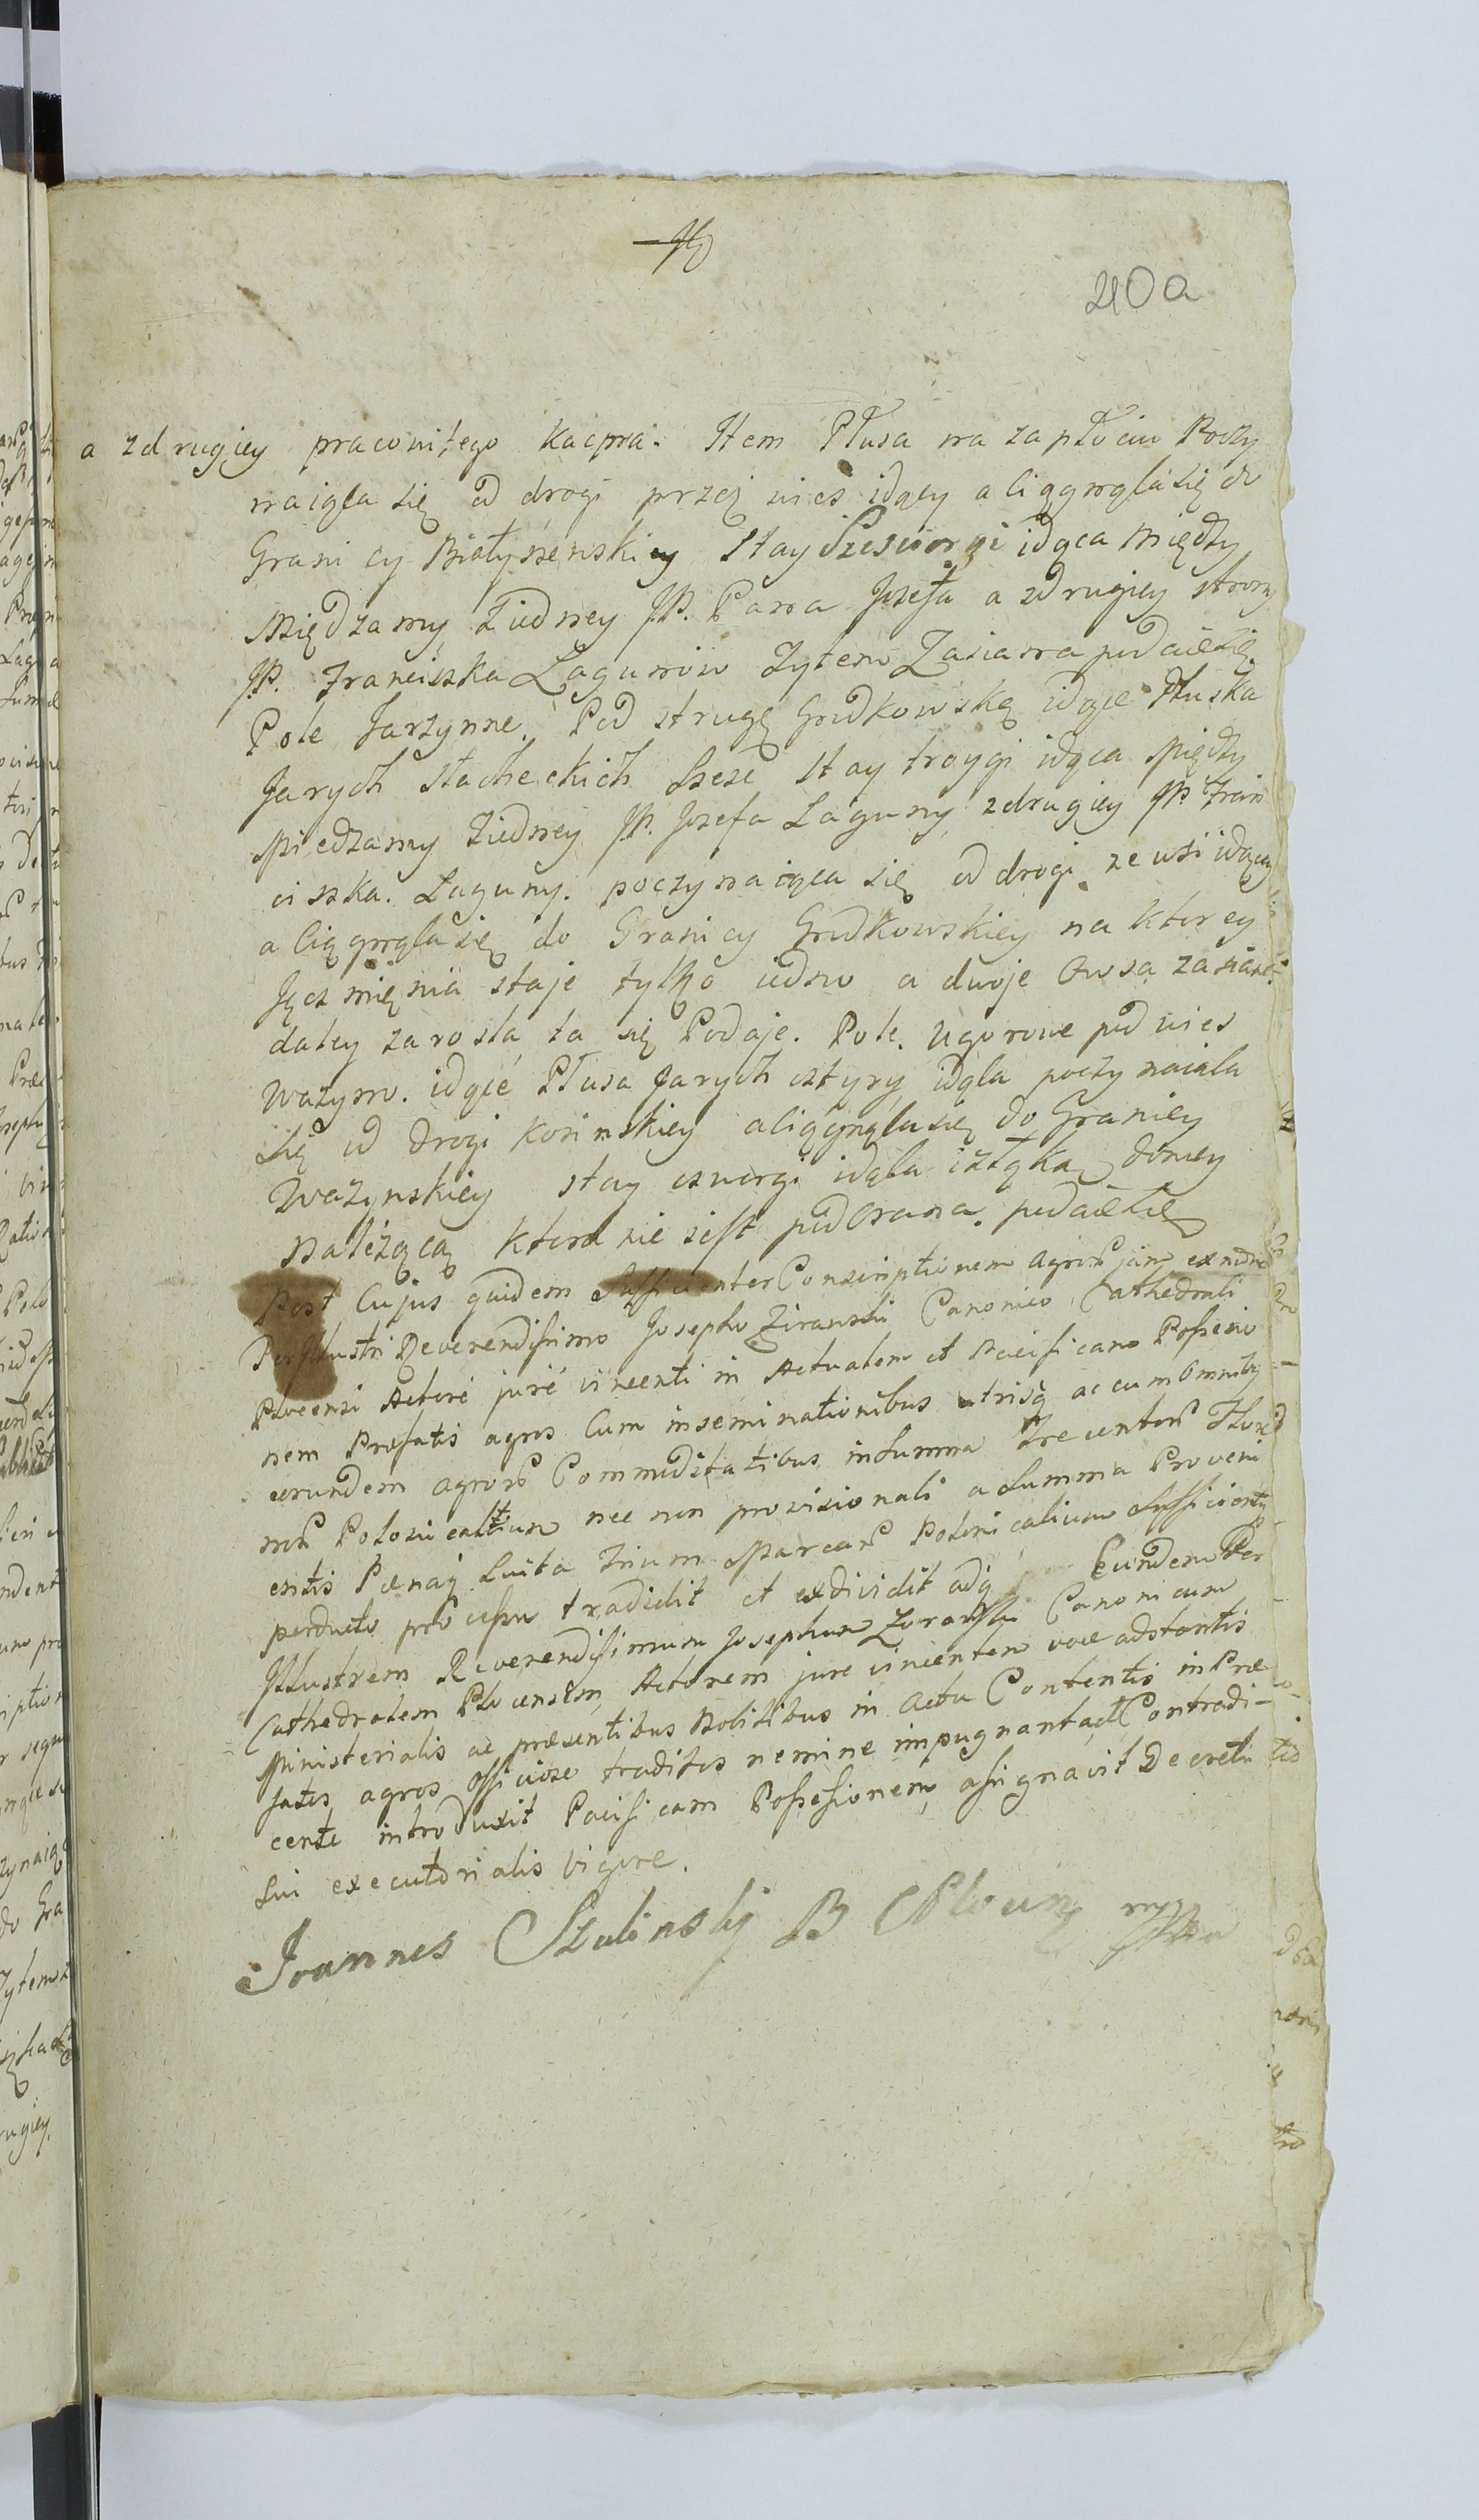 40a
a zdrugiey pracowitego Kacpra. Item Płusa na zapłociu Poczy
naiąca się od drogi przez wies idący a ciągnąca się do
Granicy Białyszewskiey Stay Szesciorgi idąca Między
Międzamy Ziedney JP. Pana Jozefa a zdrugiey strony
JP. Franciszka Lagunow Zytem Zasiana podaie się
Pole Jarzynne. Pod strugę Grudkowską idąje Płuska
Jarych Stacheckich Szesc Stay troygi idąca Między
Miedzamy Ziedney JP. Jozefa Laguny zdrugiey JP Fran
ciszka. Laguny. poczynaiąca się od drogi ze wsi idący
a ciągnąca się do Granicy Grudkowskiey na ktorey
Jęczmięnia staje tylko iedno a dwoje Owsa zasiane.
daley zarosła ta się Podaje. Pole. Ugorowe pod wies
Wazyno. idące Płusa Jarych cztyry idąca poczynaiąca
Się od drogi Kosinskiey a ciągnąca się do Granicy
Wazynskiey stay czworgi idąca i z łąką do niey
Należącą ktora nie iest podorana. podaie się
Post Cujus quidem Sufficienter Conscriptionem agror jam
Perillustri Reverendissimo Josepho Zoranski Canonico Cathedrali
Plocensi Actore jure vincenti in Actualem et Pacificam Possessio
nem Præfatis agros Cum inseminationibus utrisq ac cum Omnibus
eorundem agror Commoditatibus in Summa Trecentor Flore
nor Polonicalium nec non provisionali a Summa Proveni
entis Pænaq Luita Trium Marcar Polonicalium Sufficienty
perducto processu tradidit et exdividit adq Eundem Per
Illustrem Reverendissimum Josephum Zoranski Canonicum
Cathedralem Plocensem Actorem jure vincentem voce adstantis
Ministerialis ac præsentibus Nobilibus in Actu Contentis in Præ
fatos agros officiose traditos nemine impugnante Contradi-
cente introduxit Pacificam Possessionem assignavit Decreti
Sui executorialis vigore.
Joannes Szulinski B Plocens mpp